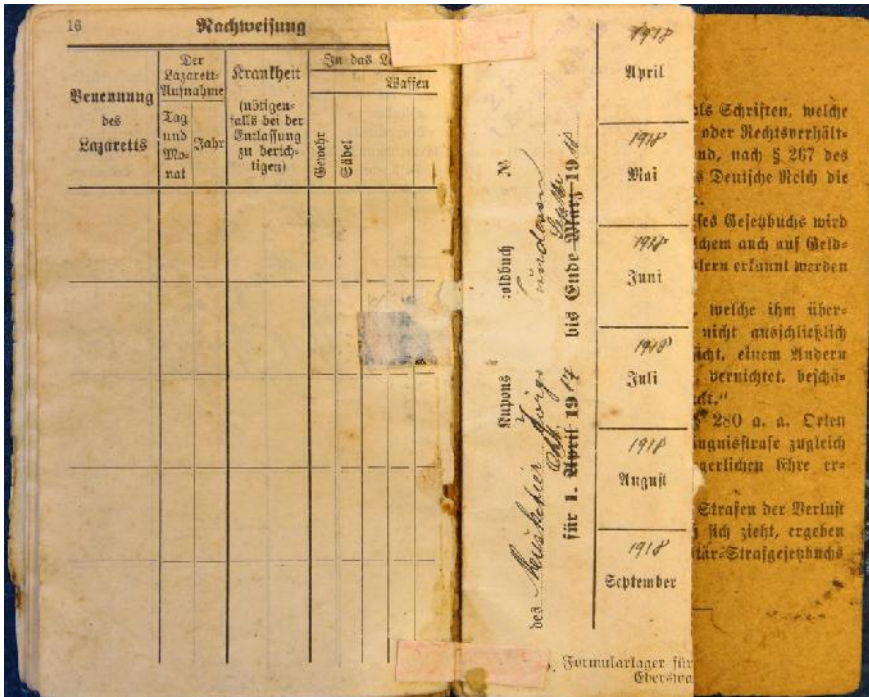 16
Nachweisung
Benennung
des
Lazaretts
Der
Lazarett-
Aufnahme
Tag
und
Mo-
nat
Jahr
Krankheit
(nötigen-
falls bei der
Entlassung
zu berich-
tigen)
In das
Waffen
Gewehr
Säbel
Kupons
oldbuch
N
des Musketier Jörge
für 1. April 1917 bis Ende März 1918
Okt
1918
April
1918
Mai
1918
Juni
1918
Juli
1918
August
1918
September
Formularlager für
Eberswa
als Schriften, welche
oder Rechtsverhält-
nd, nach § 267 des
s Deutsche Reich die
ses Gesetzbuchs wird
lchem auch auf Geld-
lern erkannt werden
, welche ihm über-
nicht ausschließlich
icht, einem Andern
vernichtet, beschä-
kt."
§ 280 a. a. Orten
ngnisstrafe zugleich
gerlichen Ehre er-
Strafen der Verlust
sich zieht, ergeben
itär-Strafgesetzbuchs